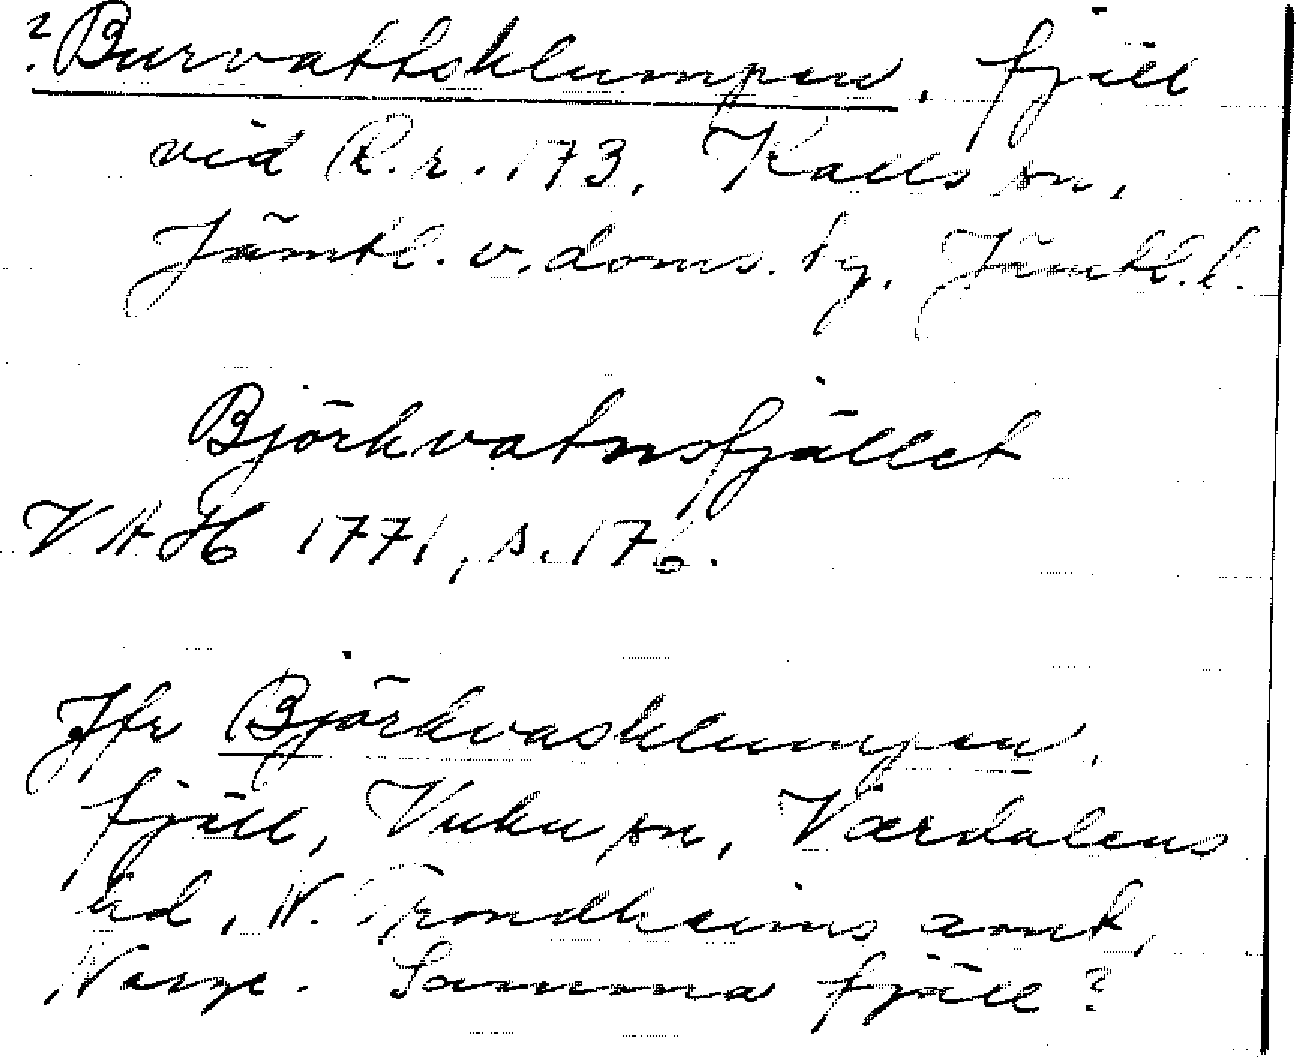 ? Burvattsklumpen, fjäll
vid R.r. 173, Kalls sn,
Jämtl. v. doms. tg, Jämtl. l.
Björkvatnsfjället
VAH 1771, s. 176.
Jfr Björkvasklumpen,
fjäll, Vuku sn, Værdalens
hd, N. Trondheims amt,
Norge. Samma fjäll?